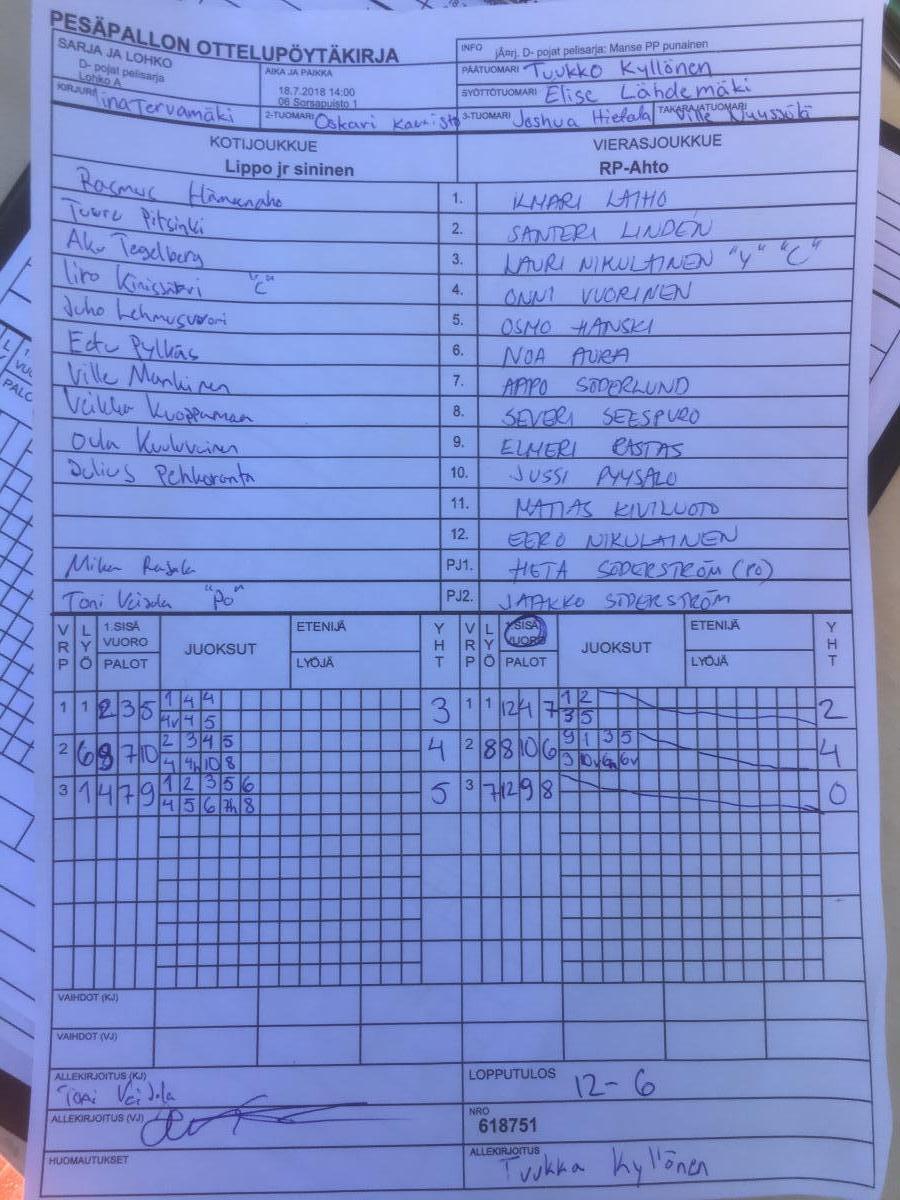 PESÄPALLON OTTELUPÖYTÄKIRJA
SARJA JA LOHKO
D- pojat pelisarja
Lohko A
AIKA JA PAIKKA
18.7.2018 14:00
06 Sorsapuisto 1
INFO jÄrj. D- pojat pelisarja: Manse PP punainen
PÄÄTUOMARI Tuukko Kyllönen
SYÖTTÖTUOMARI Elise Lähdemäki
KIRJURI Iina Tervamäki
2-TUOMARI Oskari
3-TUOMARI Joshua Hietala
TAKARAJATUOMARI Ville
KOTIJOUKKUE VIERASJOUKKUE
Lippo jr sininen RP-Ahto
Rasmus Hämeenaho 1. ILMARI LAIHO
Tuure Pitsinki 2. SANTERI LINDÉN
Aku Tegelberg 3. LAURI NIKULAINEN "Y" "C"
Iiro "C" 4. ONNI VUORINEN
Juho Lehmusvuori 5. OSMO HANSKI
Eetu Pylkäs 6. NOA AURA
Ville Mankinen 7. AAPO SÖDERLUND
Veikka 8. SEVERI SEESPURO
Oula Kuuluvainen 9. ELMERI RASTAS
Julius Pehkoranta 10. JUSSI PYYSALO
11. MATIAS KIVILUOTO
12. EERO NIKULAINEN
Mika Rasala PJ1. HETA SÖDERSTRÖM (PÖ)
Toni "PÖ" PJ2. JAAKKO SÖDERSTRÖM
VRP LYÖ 1.SISÄ VUORO PALOT JUOKSUT ETENIJÄ LYÖJÄ YHT VRP LYÖ 1.SISÄ VUORO PALOT JUOKSUT ETENIJÄ LYÖJÄ YHT
1 1 2 3 5 1 4 4 3 1 1 12 4 7 1 2 2
4v 4 5 3 5
2 6 8 7 10 2 3 4 5 4 2 8 8 10 6 9 1 3 5 4
4 4h 10 8 3 10v 6v
3 1 4 7 9 1 2 3 5 6 5 3 7 12 9 8 0
4 5 6 7h 8
VAIHDOT (KJ)
VAIHDOT (VJ)
ALLEKIRJOITUS (KJ) Toni
LOPPUTULOS 12-6
ALLEKIRJOITUS (VJ)
NRO
618751
HUOMAUTUKSET
ALLEKIRJOITUS
Tuukka Kyllönen